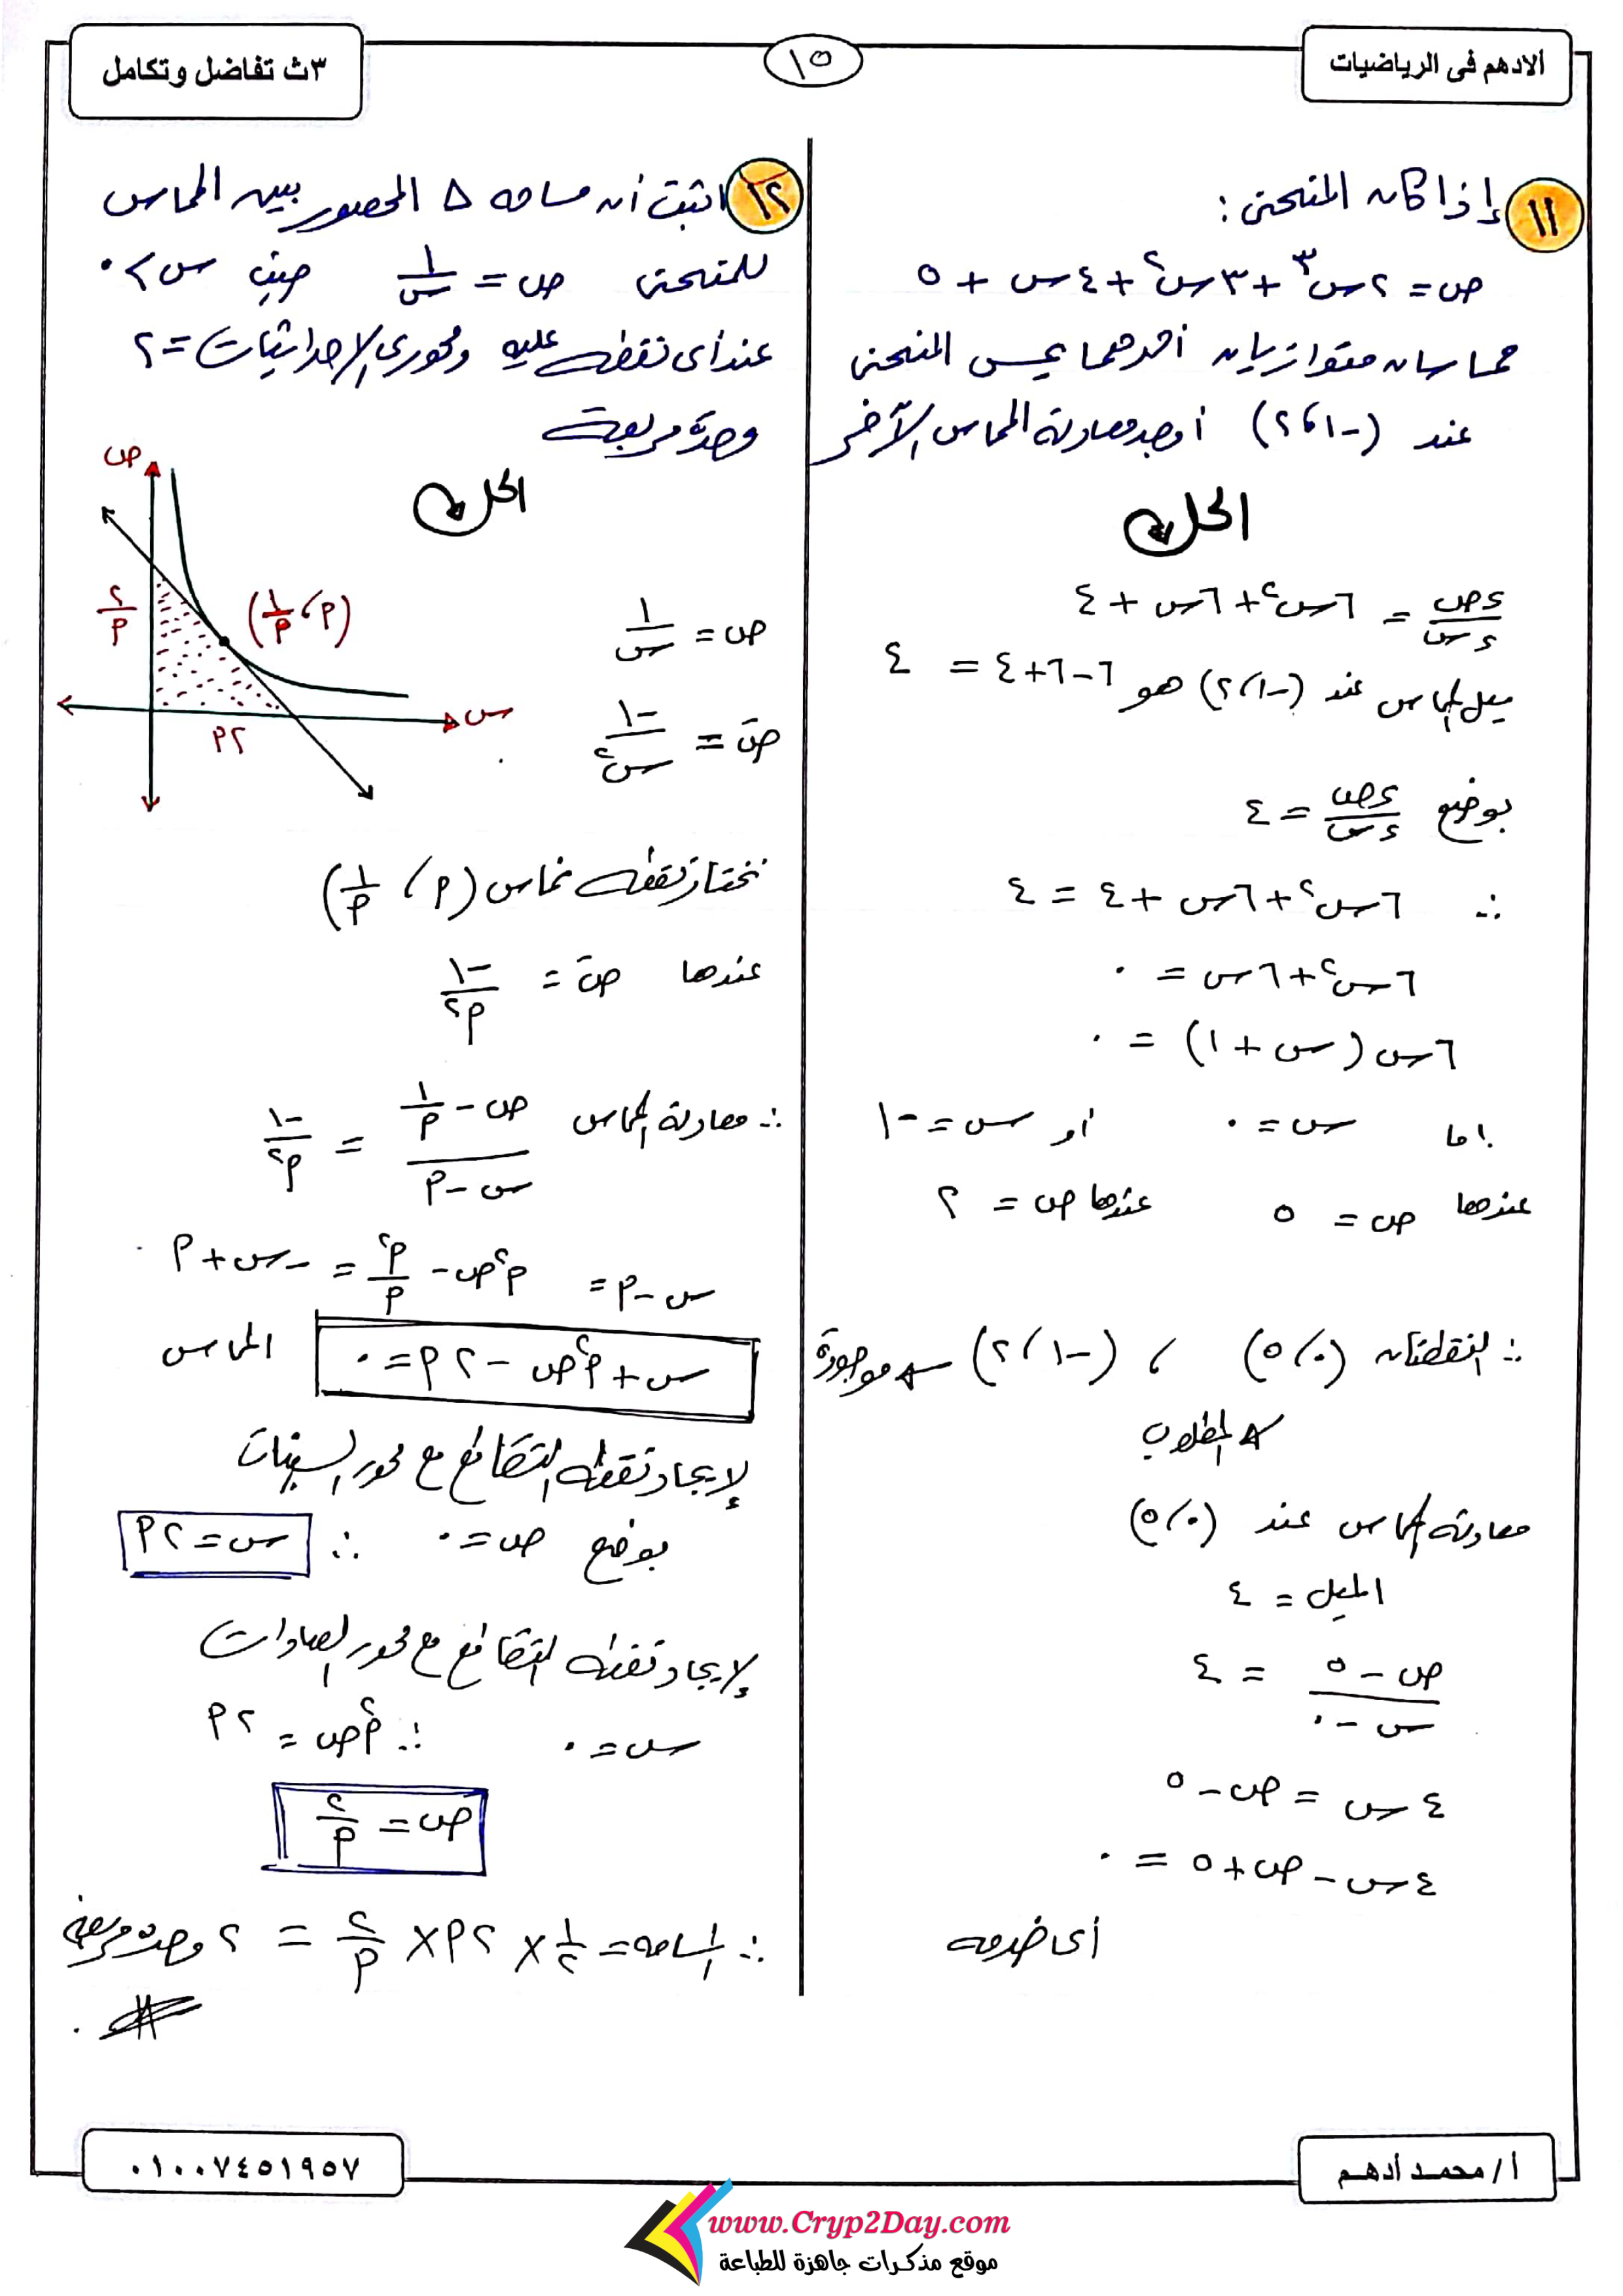 الادهم فى الرياضيات
١٥
٣ث تفاضل وتكامل
١١ إذا كان المنحنى :
ص = ٢س٣ + ٣س٢ + ٤س + ٥
مماسان متوازيان أحدهما يمس المنحنى
عند (-١، ٢) أوجد معادلة المماس الآخر
الحل
دص/دس = ٦س٢ + ٦س + ٤
ميل المماس عند (-١، ٢) هو ٦ - ٦ + ٤ = ٤
بوضع دص/دس = ٤
∴ ٦س٢ + ٦س + ٤ = ٤
٦س٢ + ٦س = ٠
٦س (س + ١) = ٠
اما س = ٠ أو س = -١
عندها ص = ٥ عندها ص = ٢
∴ النقطتان (٠، ٥) ، (-١، ٢) موجودة
المطلوب
معادلة المماس عند (٠، ٥)
الميل = ٤
ص - ٥ / س - ٠ = ٤
٤س = ص - ٥
٤س - ص + ٥ = ٠
أى خدمه
١٢ اثبت أن مساحه ∆ المحصور بين المماس
للمنحنى ص = ١/س حيث س > ٠
عند أى نقطه عليه ومحورى الإحداثيات = ٢
وحدة مربعة
الحل
ص
٢/م
(م، ١/م)
س
٢م
ص = ١/س
صَ = -١/س٢
نختار نقطه تماس (م، ١/م)
عندها صَ = -١/م٢
∴ معادلة المماس ص - ١/م / س - م = -١/م٢
س - م = م٢ص - م٢/م = -س + م
س + م٢ص - ٢م = ٠ المماس
لإيجاد نقطه التقاطع مع محور السينات
بوضع ص = ٠ ∴ س = ٢م
لإيجاد نقطه التقاطع مع محور الصادات
س = ٠ ∴ م٢ص = ٢م
ص = ٢/م
∴ المساحه = ١/٢ × ٢م × ٢/م = ٢ وحدة مربعة
أ / محمد أدهم
٠١٠٠٧٤٥١٩٥٧
www.Cryp2Day.com
موقع مذكرات جاهزة للطباعة